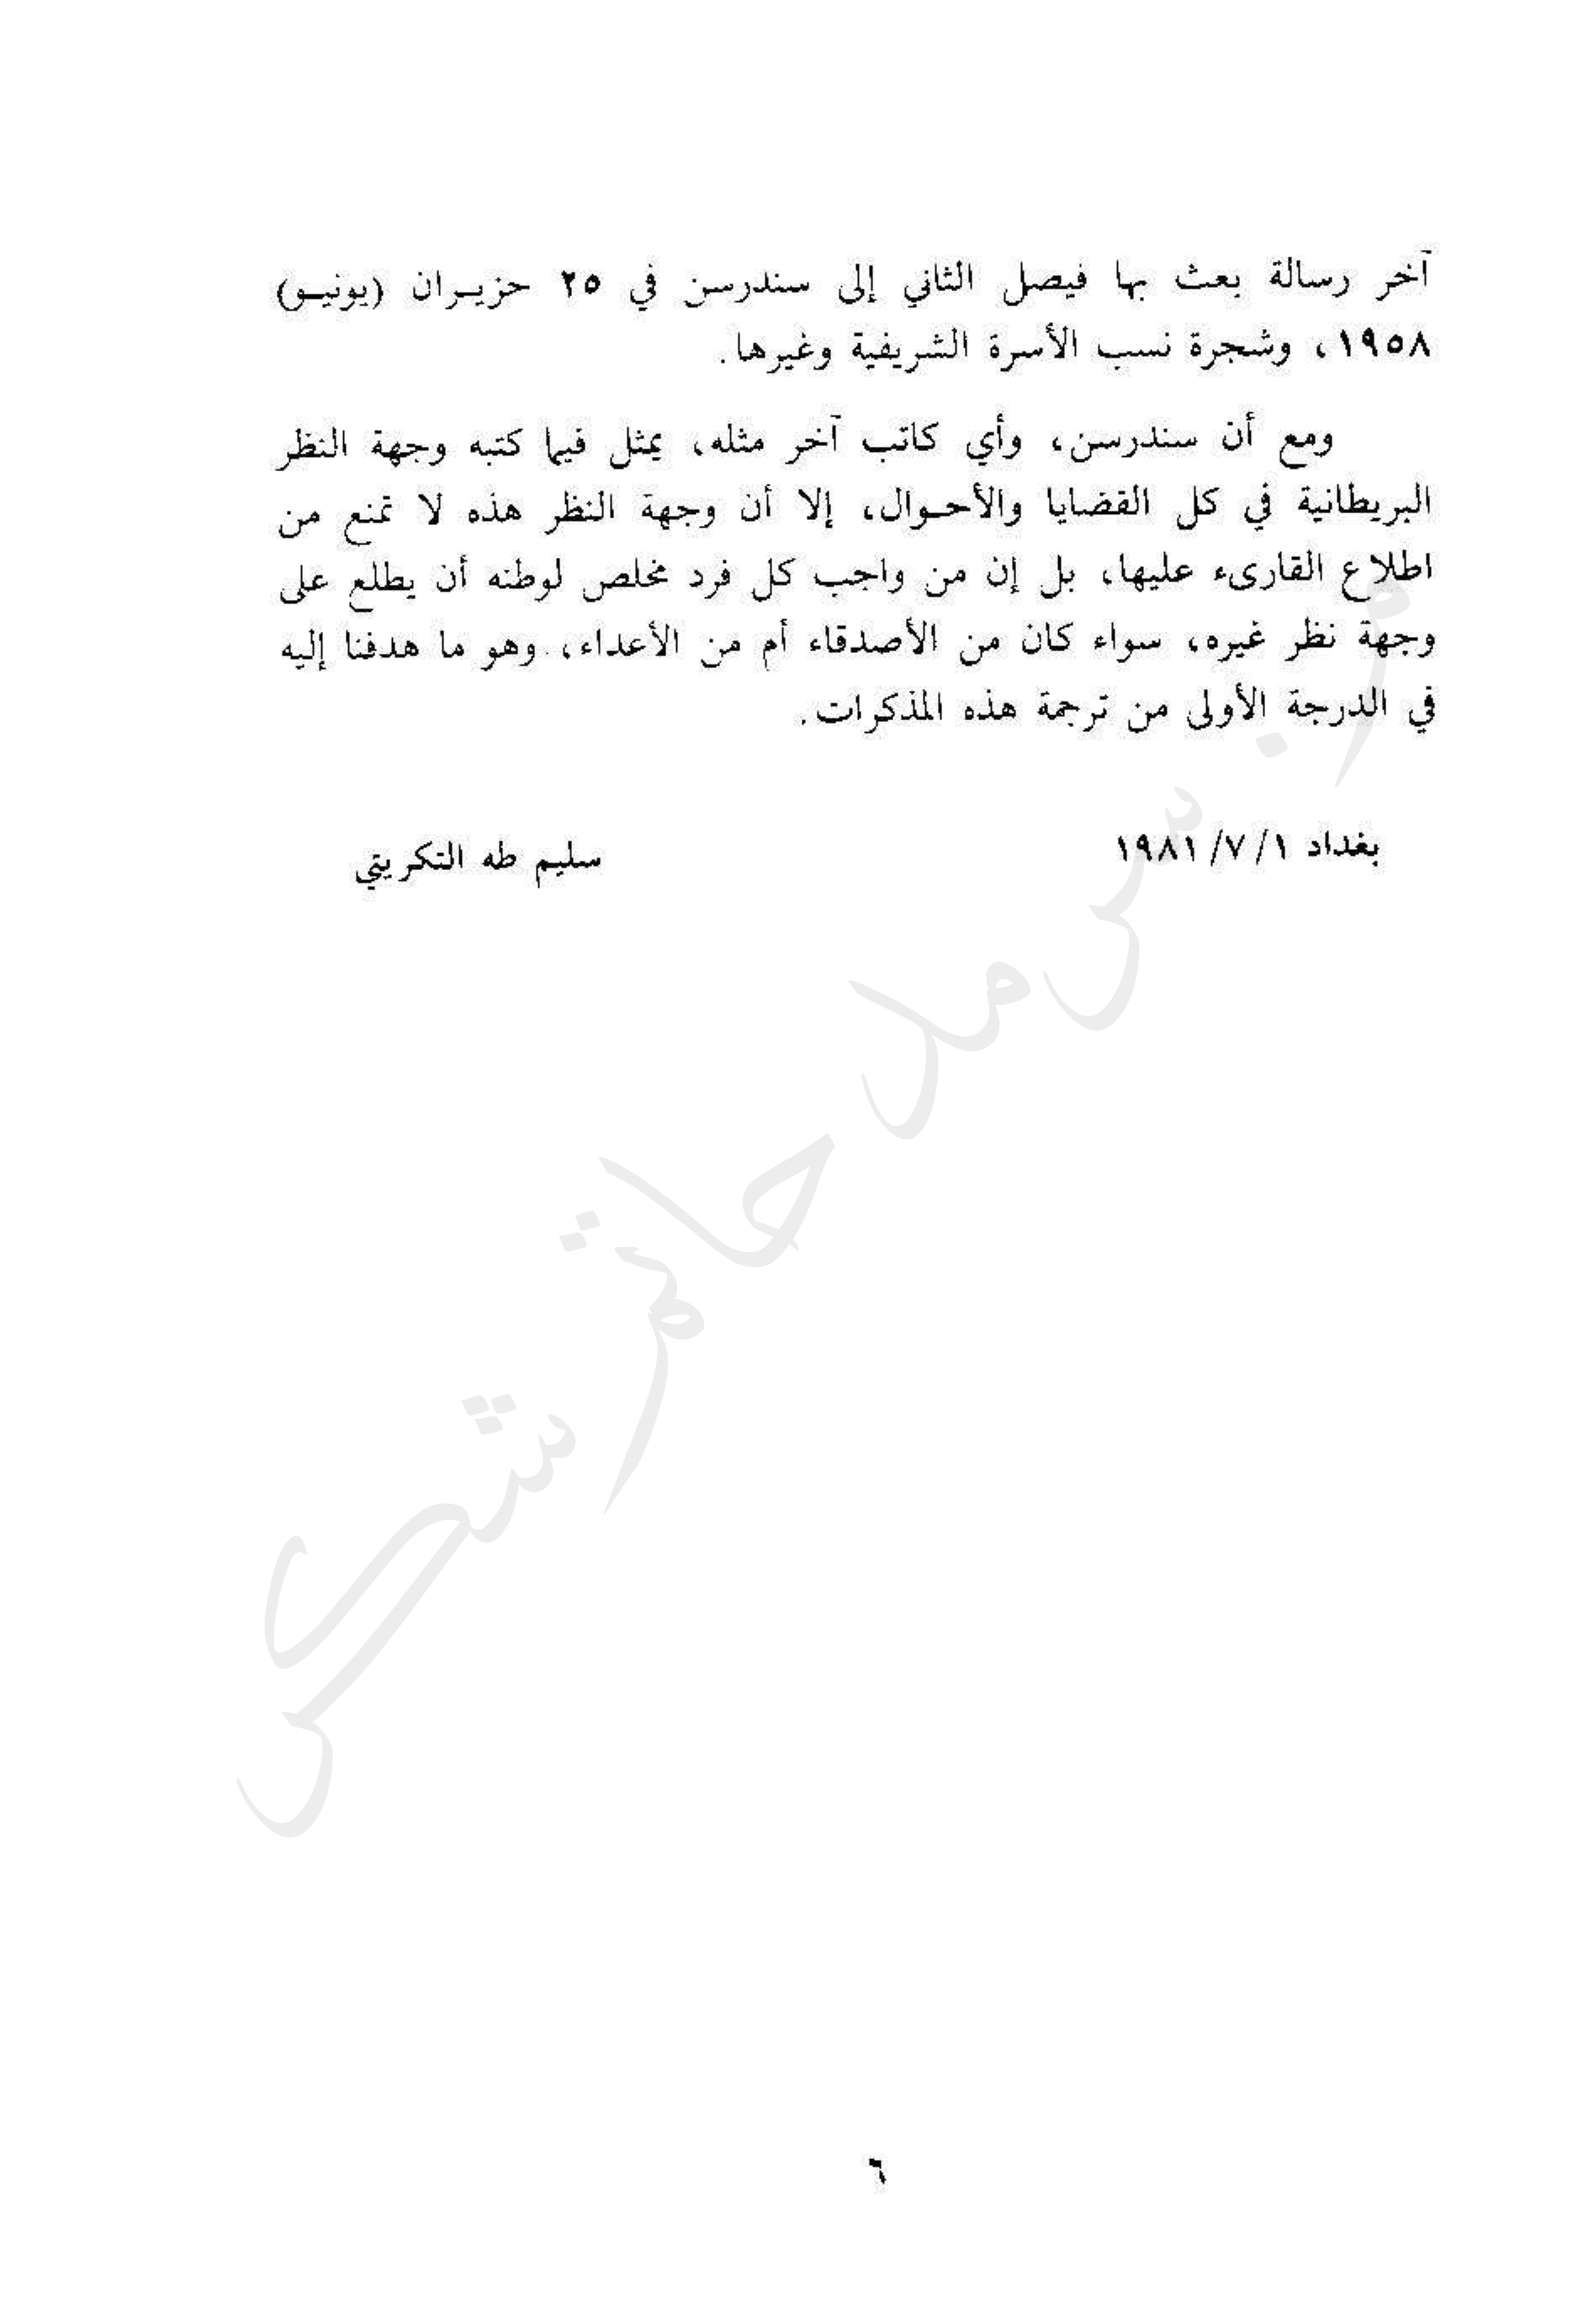 آخر رسالة بعث بها فيصل الثاني إلى سندرسن في ٢٥ حزيـران (يونيـو)
١٩٥٨، وشجرة نسب الأسرة الشريفية وغيرها.
ومع أن سندرسن، وأي كاتب آخر مثله، يمثل فيما كتبه وجهة النظر
البريطانية في كل القضايا والأحـوال، إلا أن وجهة النظر هذه لا تمنع من
اطلاع القارىء عليها، بل إن من واجب كل فرد مخلص لوطنه أن يطلع على
وجهة نظر غيره، سواء كان من الأصدقاء أم من الأعداء، وهو ما هدفنا إليه
في الدرجة الأولى من ترجمة هذه المذكرات.
بغداد ١/ ٧/ ١٩٨١
سليم طه التكريتي
سرمد حاتم شكر
٦